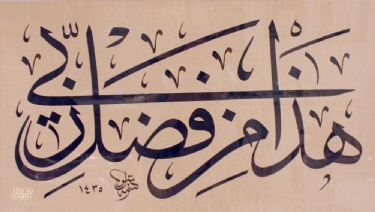 هَذَا مِنْ فَضْلِ رَبِّي
١٤٣٥